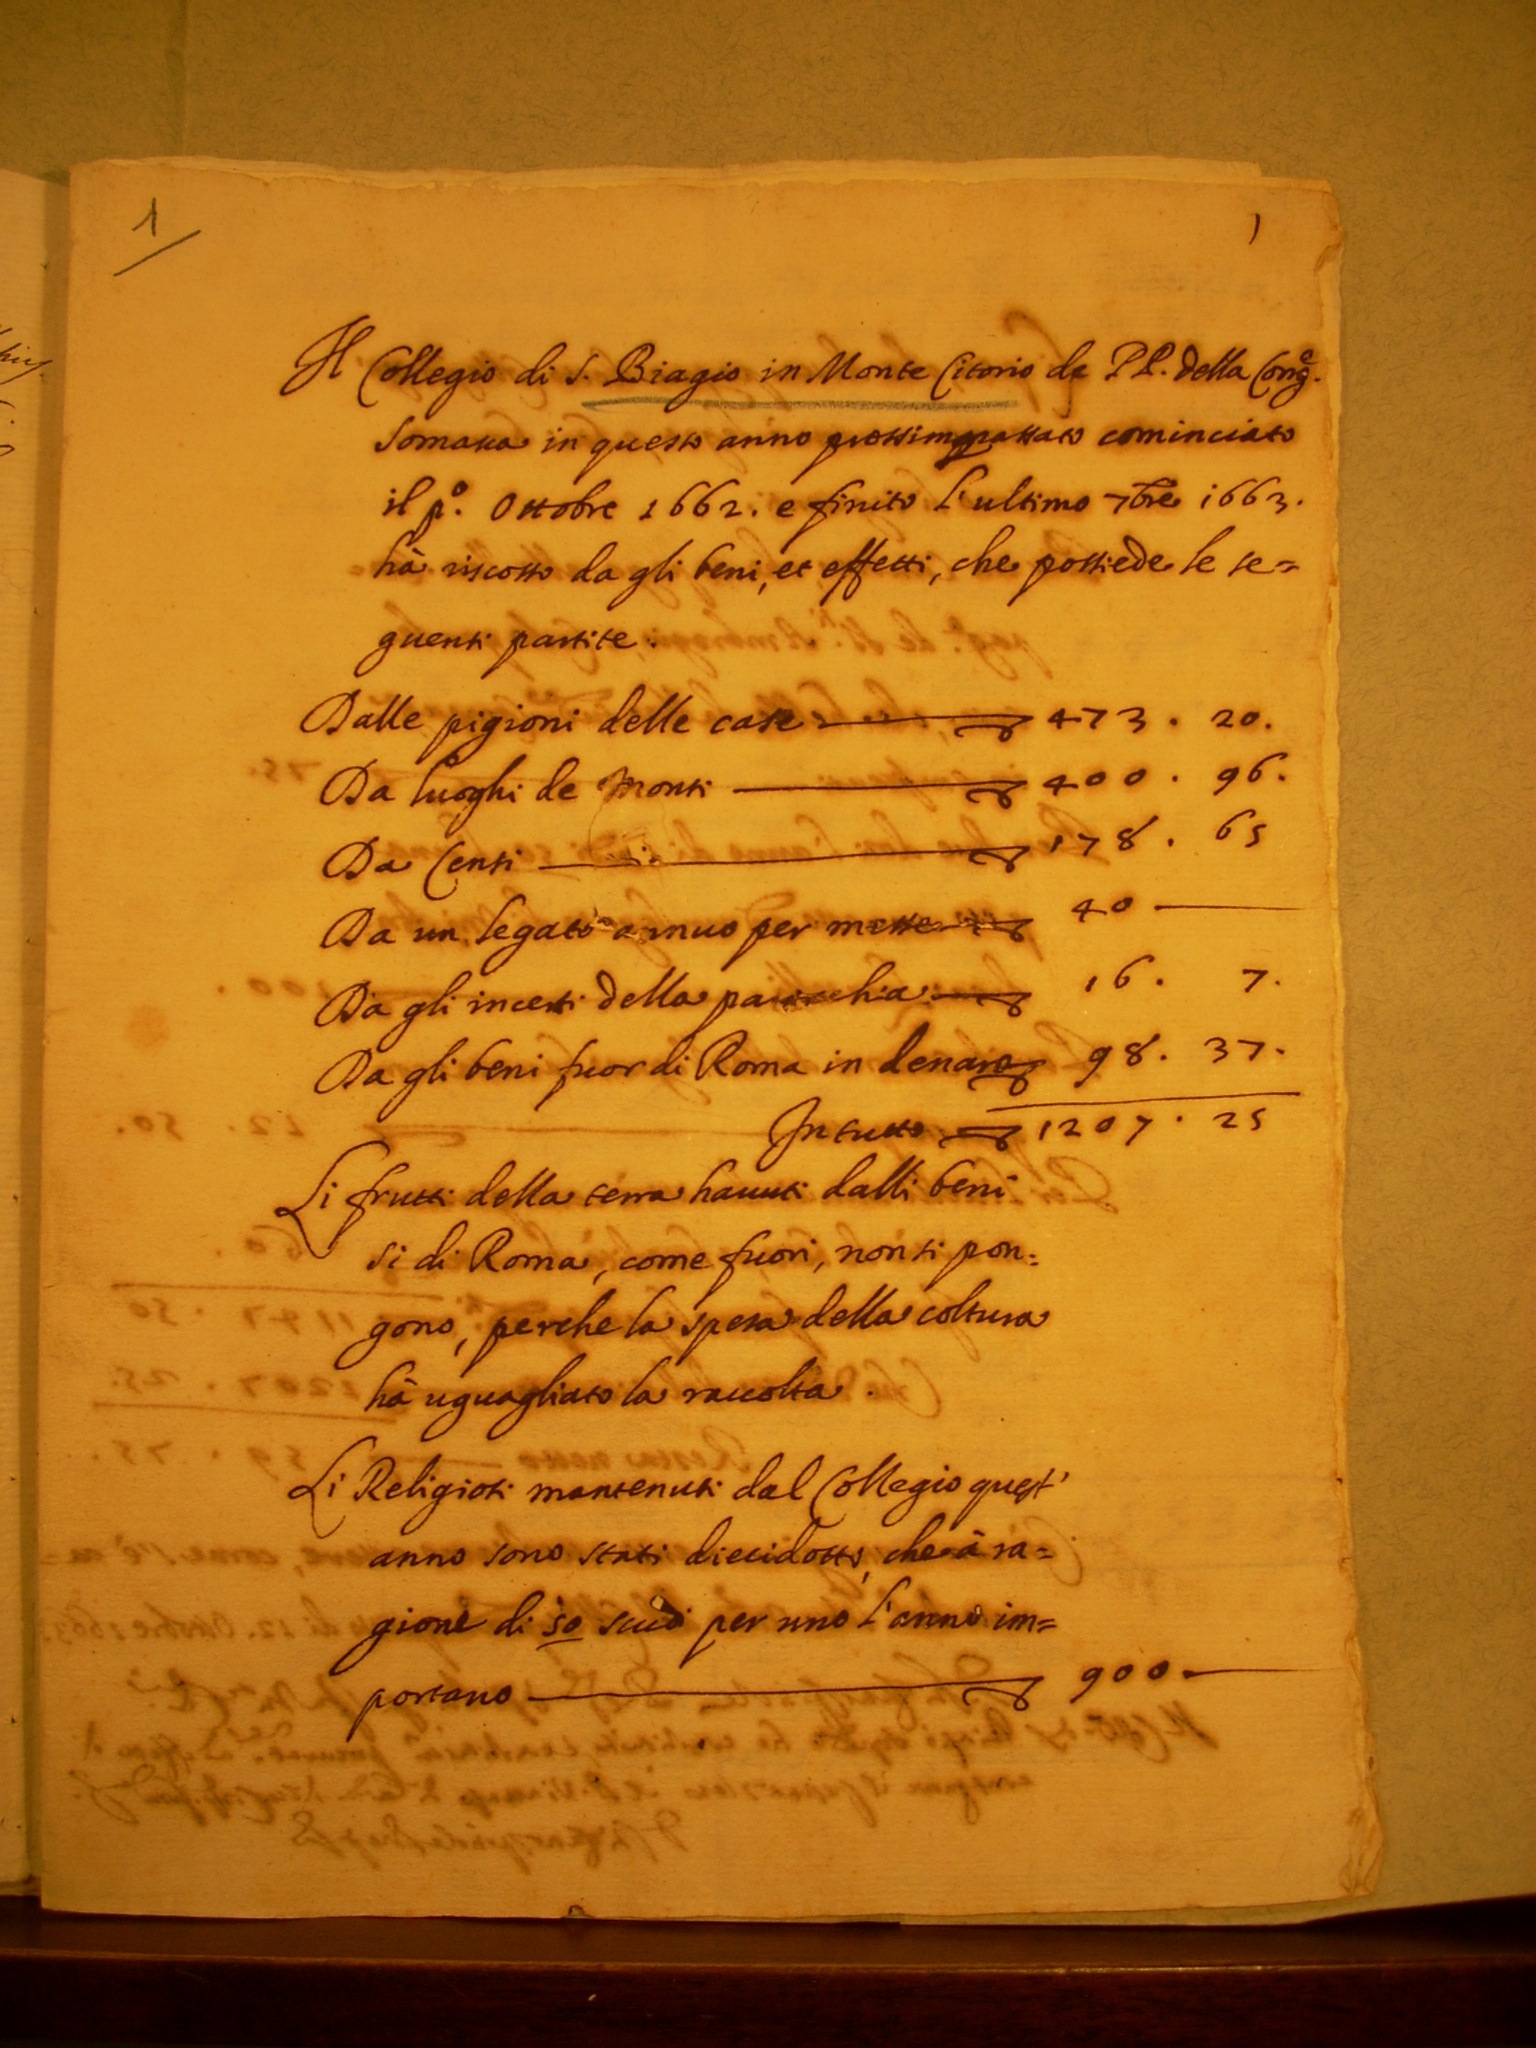 1
1
Il Collegio di S. Biagio in Monte Citorio de PP. della Congne.
Somasca in questo anno prossimo passato cominciato
il po. Ottobre 1662. e finito l'ultimo 7bre 1663.
hà riscosso da gli beni, et effetti, che possiede le se=
guenti partite.
Dalle pigioni delle case 473. 20.
Da luoghi de Monti 400. 96.
Da Censi 178. 65
Da un legato annuo per messe 40
Da gli incerti della parochia 16. 7.
Da gli beni fuor di Roma in denaro 98. 37.
In tutto 1207. 25
Li frutti della terra havuti dalli beni
si di Roma, come fuori, non si pon=
gono, perche la spesa della coltura
hà uguagliato la raccolta.
Li Religiosi mantenuti dal Collegio quest'
anno sono stati diecidotto, che à ra=
gione di 50 scudi per uno l'anno im=
portano 900